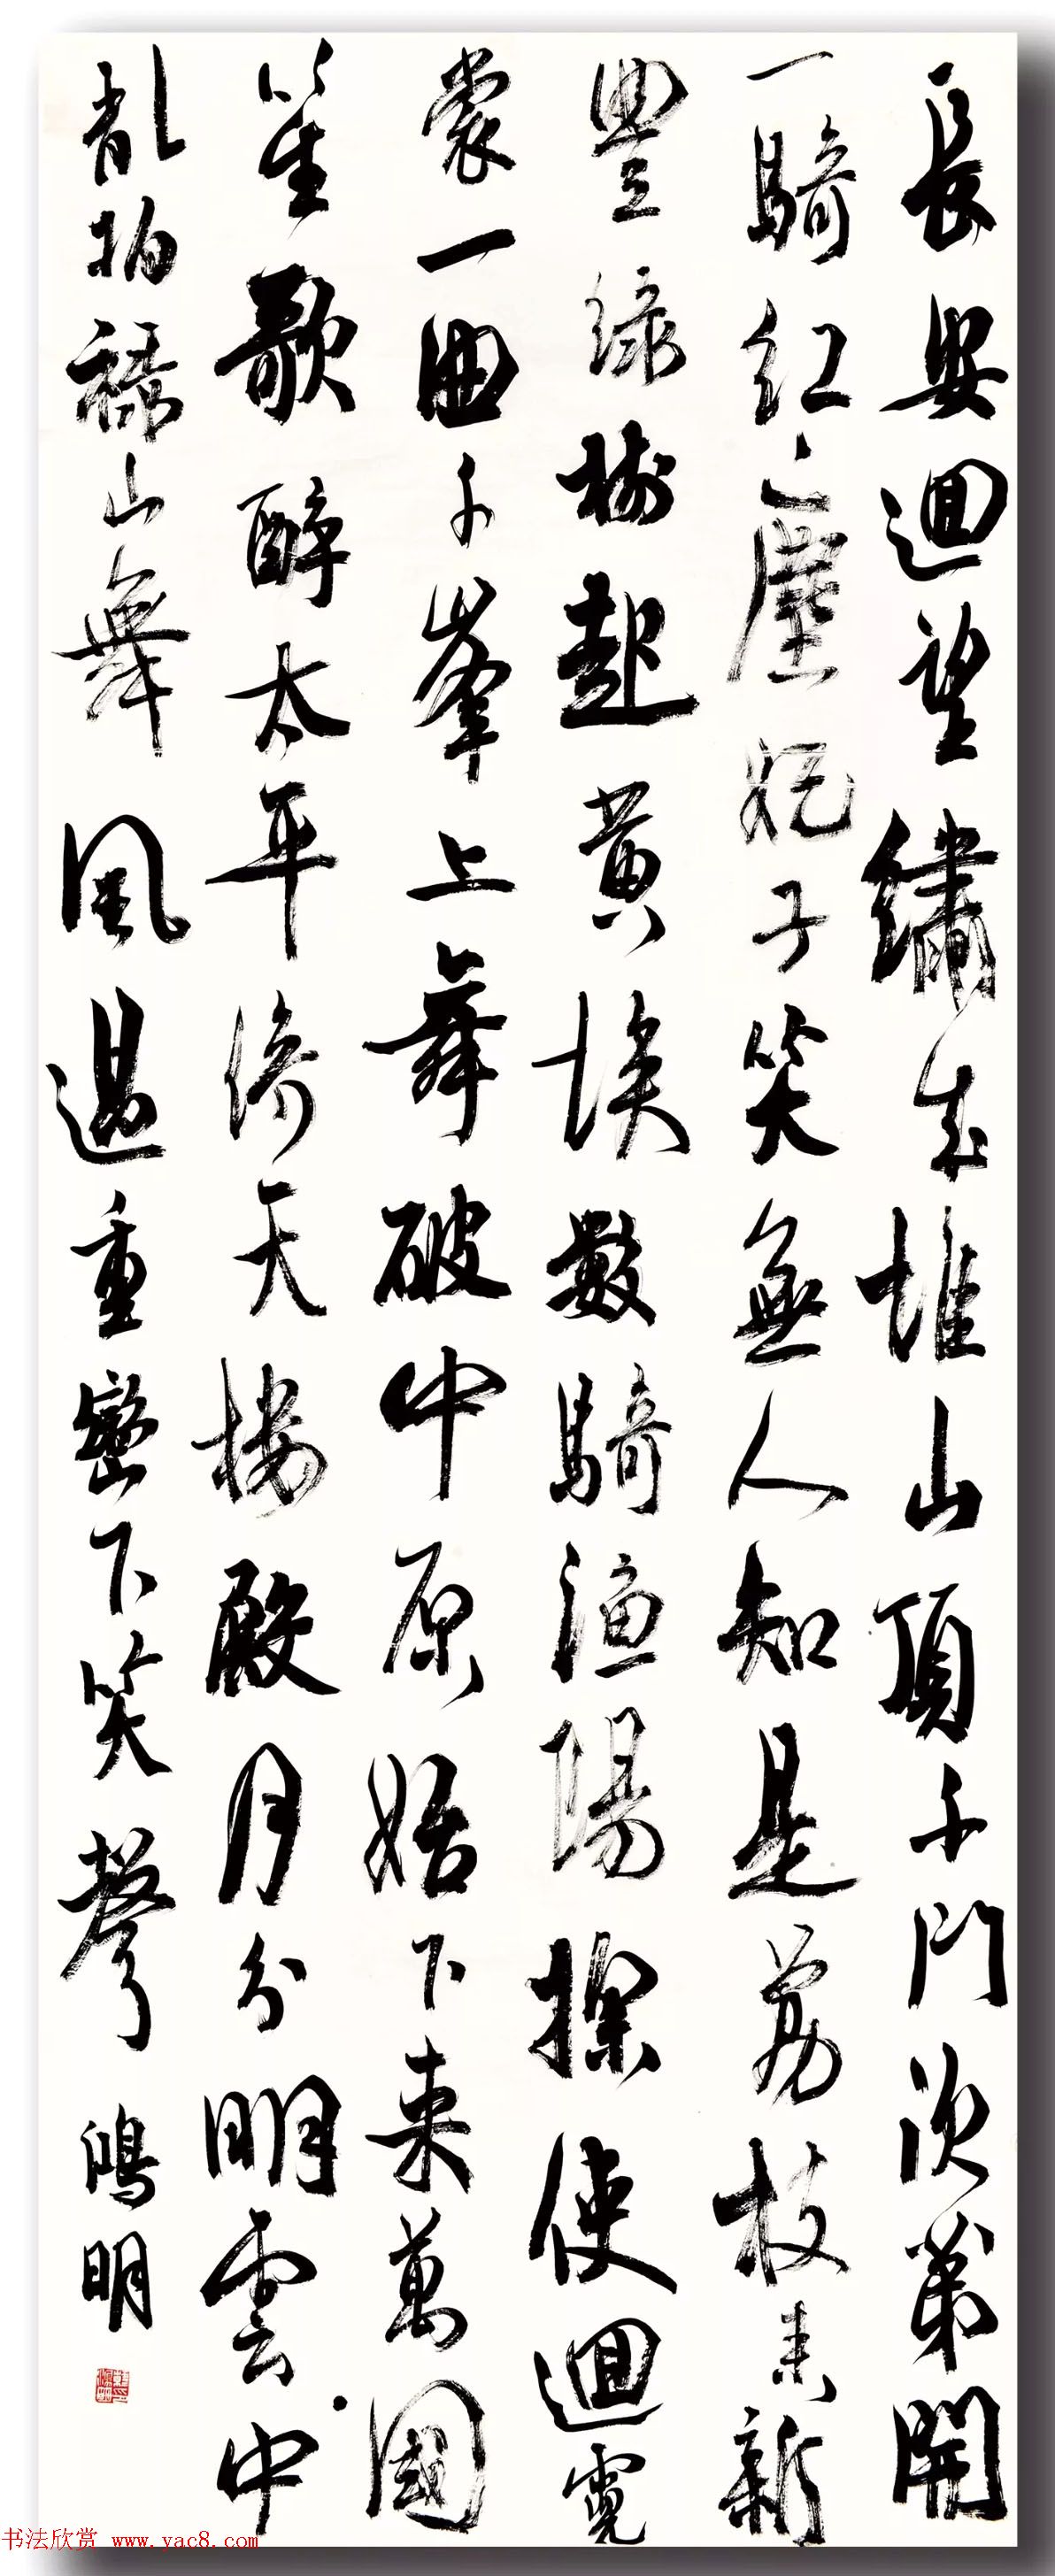 長安迴望繡成堆山頂千門次第開
一騎紅塵妃子笑無人知是荔枝来新
豐绿樹起黄埃數騎漁陽探使迴霓
裳一曲千峯上舞破中原始下来萬國
笙歌醉太平倚天樓殿月分明雲中
乱拍禄山舞風過重巒下笑聲 鴻明
书法欣赏 www.yac8.com